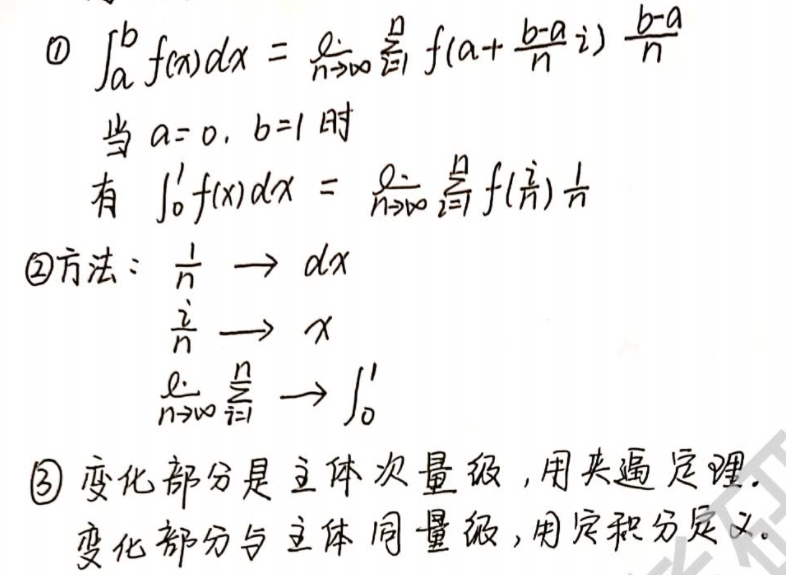 ① ∫_a^b f(x)dx = lim_{n→∞} Σ_{i=1}^n f(a+ (b-a)/n i) (b-a)/n
当 a=0, b=1 时
有 ∫_0^1 f(x)dx = lim_{n→∞} Σ_{i=1}^n f(i/n) 1/n
②方法: 1/n → dx
i/n → x
lim_{n→∞} Σ_{i=1}^n → ∫_0^1
③ 变化部分是主体次量级,用夹逼定理.
变化部分与主体同量级,用定积分定义。
研